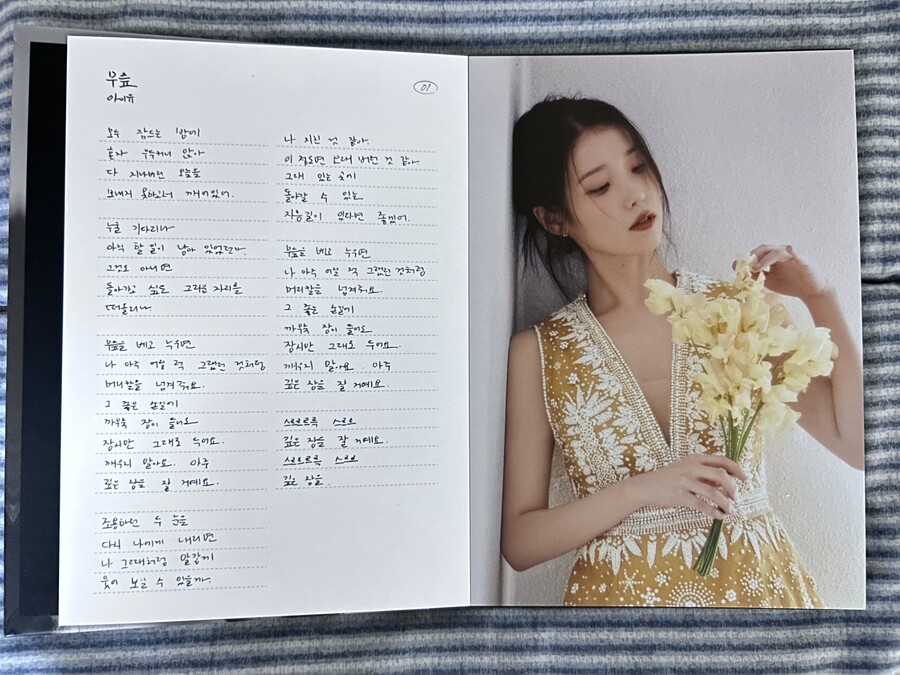 무릎
아이유
01
모두 잠드는 밤에
혼자 우두커니 앉아
다 지나버린 오늘을
보내지 못하고서 깨어있어.
누굴 기다리나
아직 할 일이 남아 있었던가.
그것도 아니면
돌아가고 싶은 그리운 자리를
떠올리나
무릎을 베고 누우면
나 아주 어릴 적 그랬던 것처럼
머리칼을 넘겨줘요.
그 좋은 손길에
까무룩 잠이 들어도
잠시만 그대로 두어요.
깨우지 말아요. 아주
깊은 잠을 잘 거예요.
조용하던 두 눈을
다시 나에게 내리면
나 그때처럼 말갛게
웃어 보일 수 있을까.
나 지친 것 같아
이 정도면 오래 버틴 것 같아
그대 있는 곳에
돌아갈 수 있는
지름길이 있다면 좋겠어.
무릎을 베고 누우면
나 아주 어릴 적 그랬던 것처럼
머리칼을 넘겨줘요.
그 좋은 손길에
까무룩 잠이 들어도
잠시만 그대로 두어요.
깨우지 말아요 아주
깊은 잠을 잘 거예요.
스르르르륵 스르르
깊은 잠을 잘 거예요.
스르르르륵 스르르
깊은 잠을